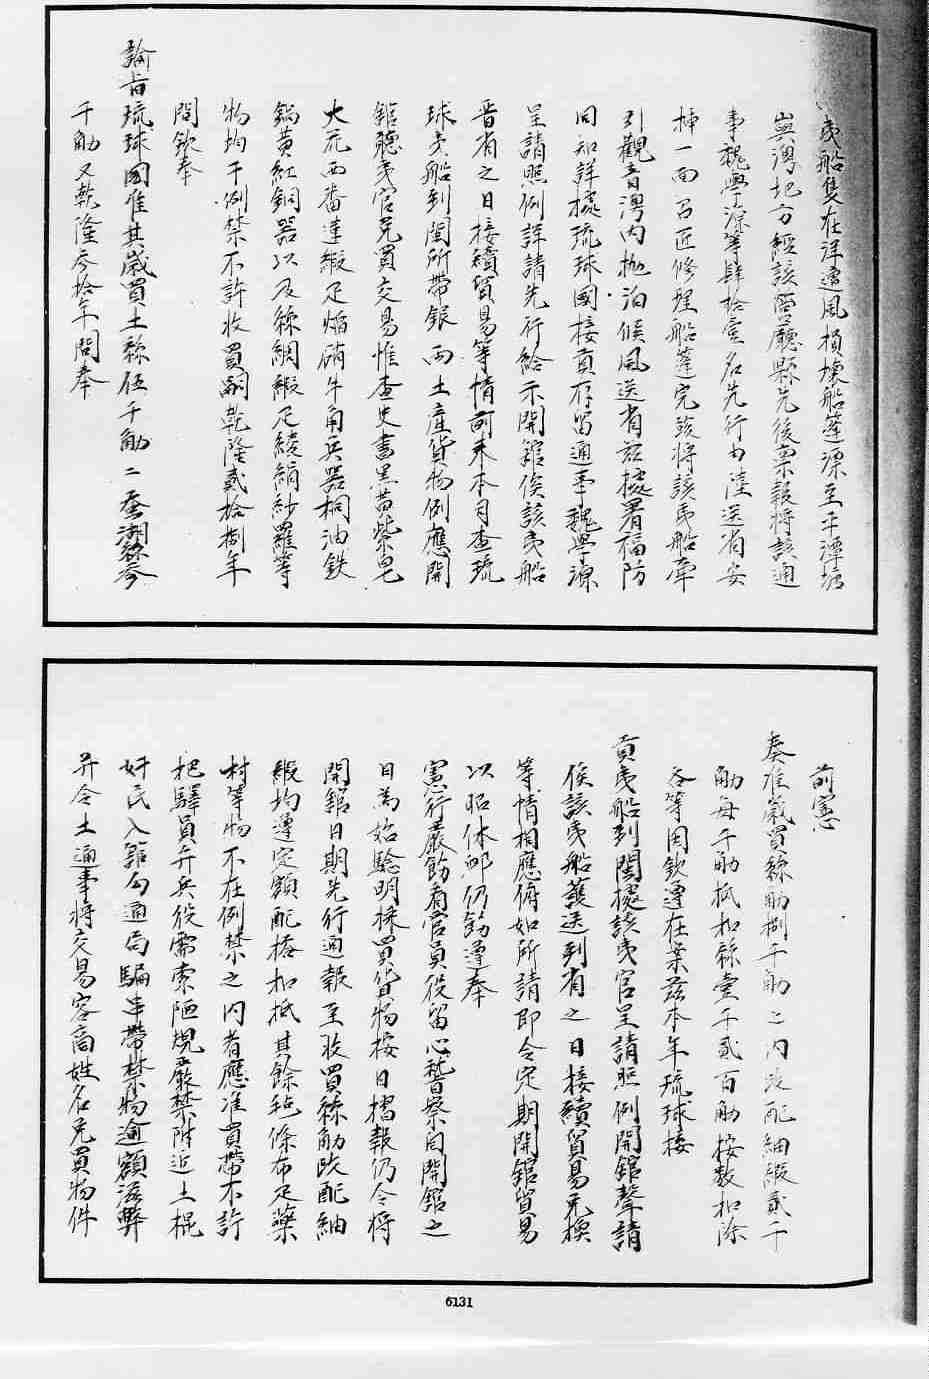 夷船隻在洋遭風損壞船篷漂至平潭坊
與灣地方經該營廳縣先後稟報將該通
事魏學源等肆拾壹名先行由陸送省安
插一面召匠修理船篷完竣將該夷船牽
引觀音灣內拋泊候風送省茲據署福防
同知詳據琉球國接貢存留通事魏學源
呈請照例詳請先行給示開館俟該夷船
晉省之日接續貿易等情前來本司查琉
球夷船到閩所帶銀兩土產貨物例應開
館聽夷官兌買交易惟查史書黑黃紫皂
大花西番蓮緞疋焰硝牛角兵器桐油鉄
鍋黃紅銅器以及絲綢緞疋綾絹紗羅等
物均干例禁不許收買嗣乾隆貳拾捌年
間欽奉
諭旨琉球國准其歲買土絲伍千觔二蚕湖絲叄
千觔又乾隆叄拾年間奉
前憲
奏准歲買絲觔捌千觔之內改配紬緞貳千
觔每千觔抵扣絲壹千貳百觔按數扣除
各等因欽遵在案茲本年琉球接
貢夷船到閩據該夷官呈請照例開館聲請
俟該夷船護送到省之日接續貿易兌換
等情相應俯如所請即令定期開館貿易
以昭休卹仍飭遵奉
憲行嚴飭看官員役留心稽察自開館之
日為始驗明採買貨物按日摺報仍令將
開館日期先行通報至收買絲觔改配紬
緞均遵定額配搭扣抵其餘毡條布疋藥
材等物不在例禁之內者應准買帶不許
把驛員弁兵役需索陋規嚴禁附近土棍
奸民入館勾通局騙串帶禁物逾額滋弊
并令土通事將交易客商姓名兌買物件
6131